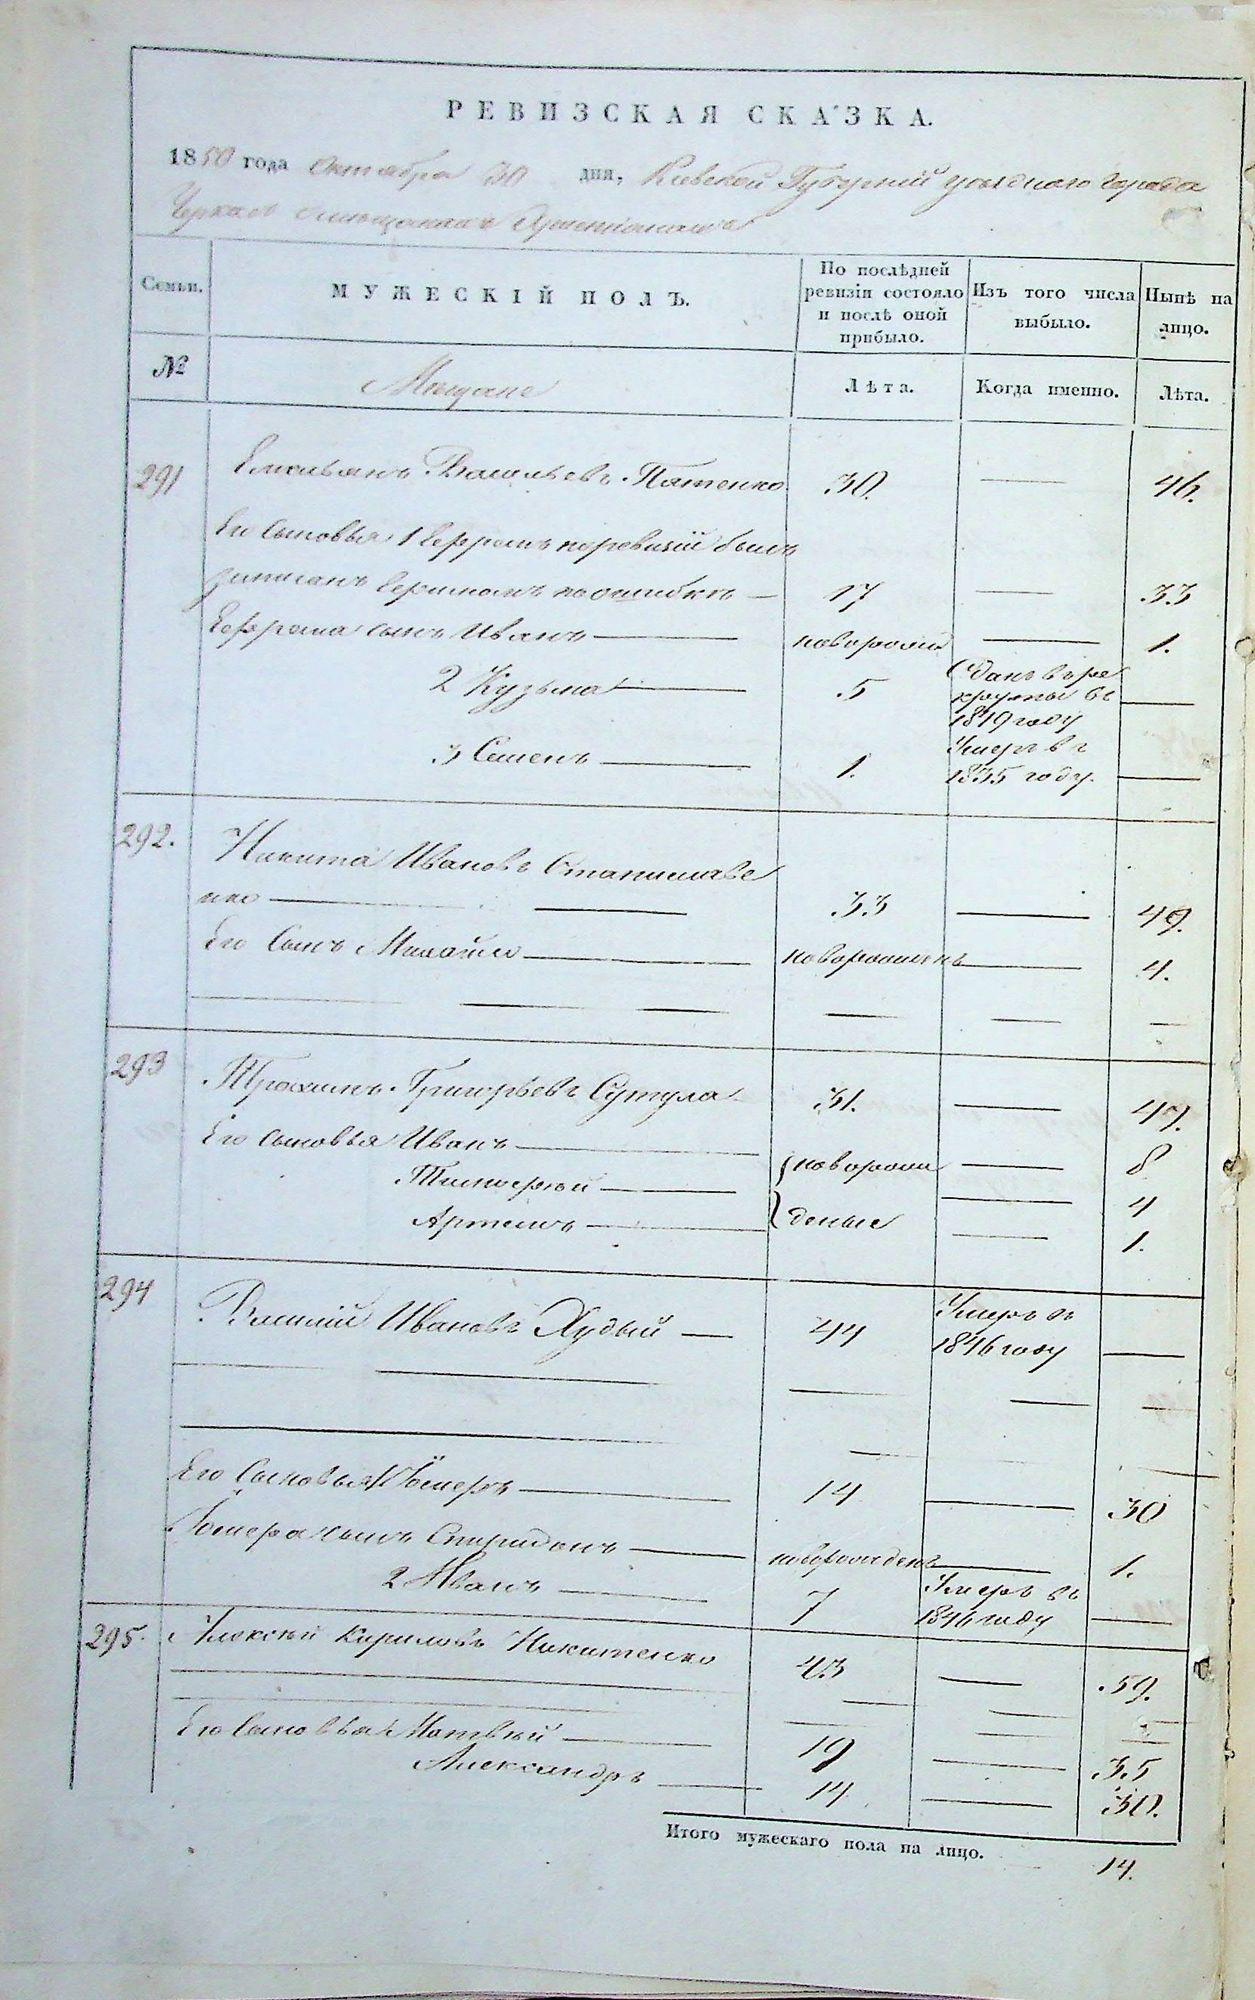 РЕВИЗСКАЯ СКАЗКА.
1850 года Октября 30 дня, Киевской Губерній уѣзднаго города
Черкас
Семьи.
МУЖЕСКІЙ ПОЛЪ.
По послѣдней ревизіи состояло и послѣ оной прибыло.
Изъ того числа выбыло.
Нынѣ на лицо.
№
Мещане
Лѣта.
Когда именно.
Лѣта.
291 Емельянъ Васильевъ Патенко 30. 46.
Его сыновья 1 Ефремъ поревизій былъ
записанъ по ошибкѣ 17 33
Ефрема сынъ Иванъ новорожд 1.
2 Кузьма 5 Сданъ въ ре
круты въ
1849 году
3 Семенъ 1. Умеръ въ
1835 году.
292. Никита Ивановъ Станиславе
нко 33 49.
Его Сынъ Михайло новорожденъ 4.
293 Трохимъ Григорьевъ Сутула 31. 47.
Его сыновья Иванъ новорож 8
Тимофей 4
Артемъ денные 1.
294 Василій Ивановъ Худый 44 Умеръ въ
1846 году
Его Сыновья 1 14 30
сынъ Спиридонъ новорожденъ 1.
2 Иванъ 7 Умеръ въ
1846 году
295. Алексѣй Кириловъ Никитенко 43 59.
Его Сыновья Матвѣй 19 35
Александръ 14 30.
Итого мужескаго пола на лицо. 14.